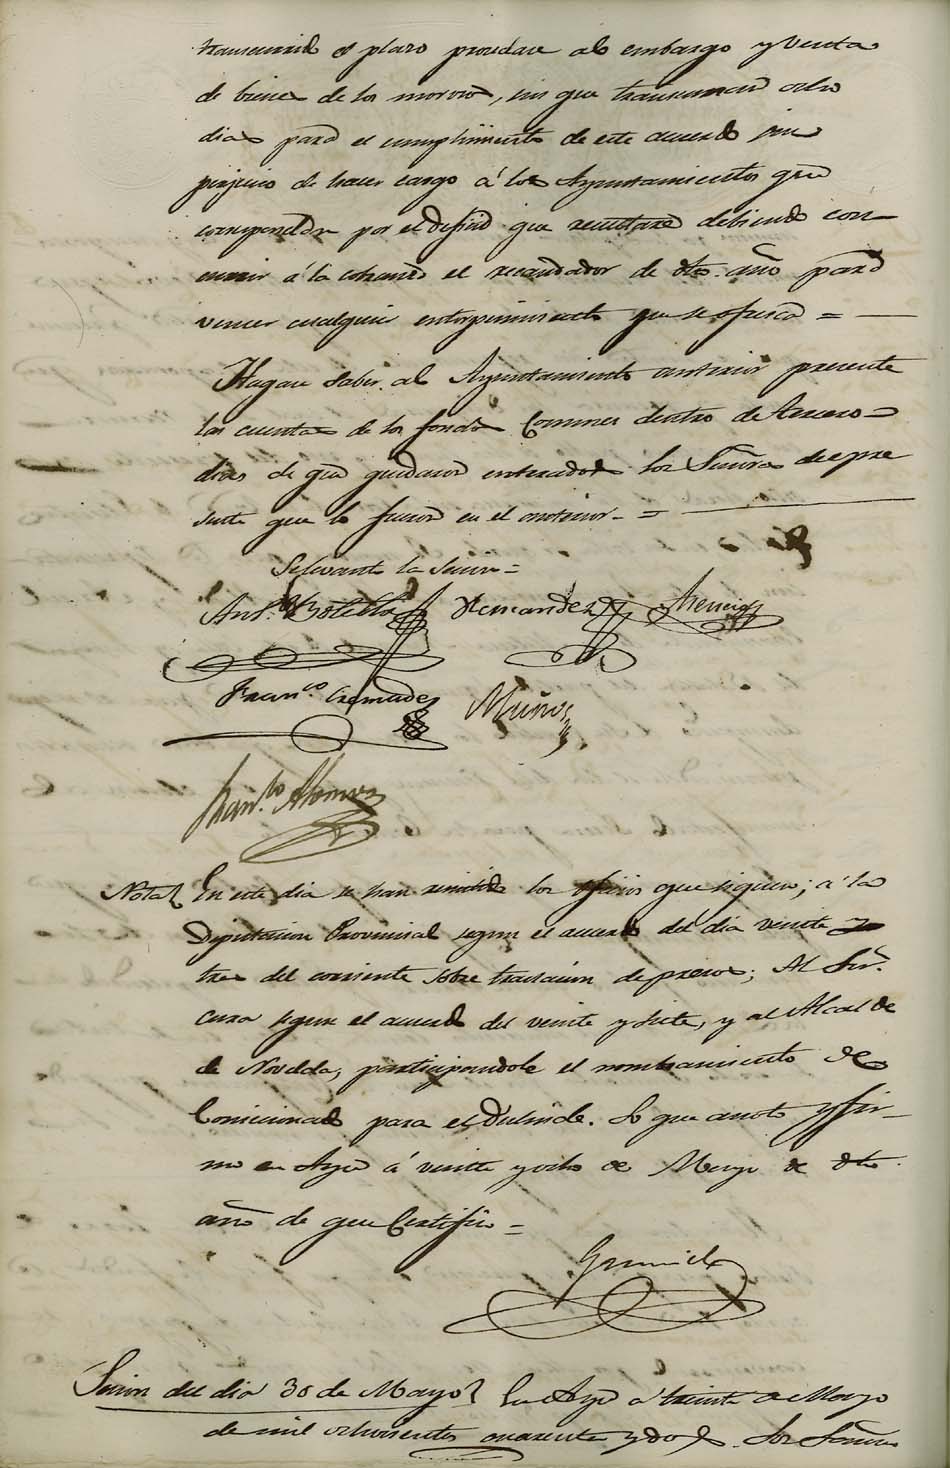 transcurrido el plazo procedase al embargo y venta
de bienes de los morosos, sin que transcurran ocho
dias para el cumplimiento de este acuerdo sin
perjuicio de hacer cargo á los Ayuntamientos que
corresponda por el deficid que resultare debiendo con-
currir á la cobranza el recaudador de dho. año para
vencer cualquier entorpecimiento que se ofresca =
Hagase saber al Ayuntamiento anterior presente
las cuentas de los fondos Comunes dentro de tercero
dias de que quedaron enterados los Señores de pre
sente que lo fueron en el anterior. =
Se levantó la Sesion =
Ant.º Botella Hernandez
Fran.co Cremades Muños
Fran.co Alonso
Nota En este dia se han remitido los oficios que siguen; á la
Diputacion Provincial segun el acuerdo del dia veinte y
tres del corriente sobre traslacion de presos; Al Sor.
cura segun el acuerdo del veinte y siete, y al Alcalde
de Novelda, participandole el nombramiento de
Comicionado para el deslinde. Lo que anoto y fir-
mo en Aspe á veinte y ocho de Mayo de dho.
año de que Certifico =
Sesion del dia 30 de Mayo En Aspe á treinta de Mayo
de mil ochocientos cuarenta y dos. Los Señores